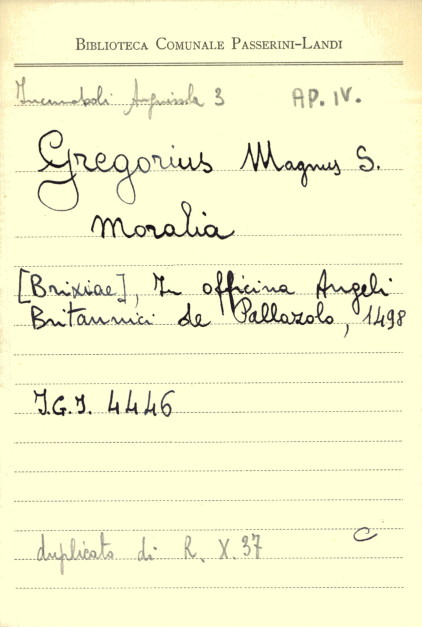 BIBLIOTECA COMUNALE PASSERINI-LANDI
Incunaboli Anguissola 3 AP. IV.
Gregorius Magnus S.
Moralia
[Brixiae], In officina Angeli
Britannici de Pallazolo, 1498
I.G.I. 4446
C
duplicato di R. X. 37